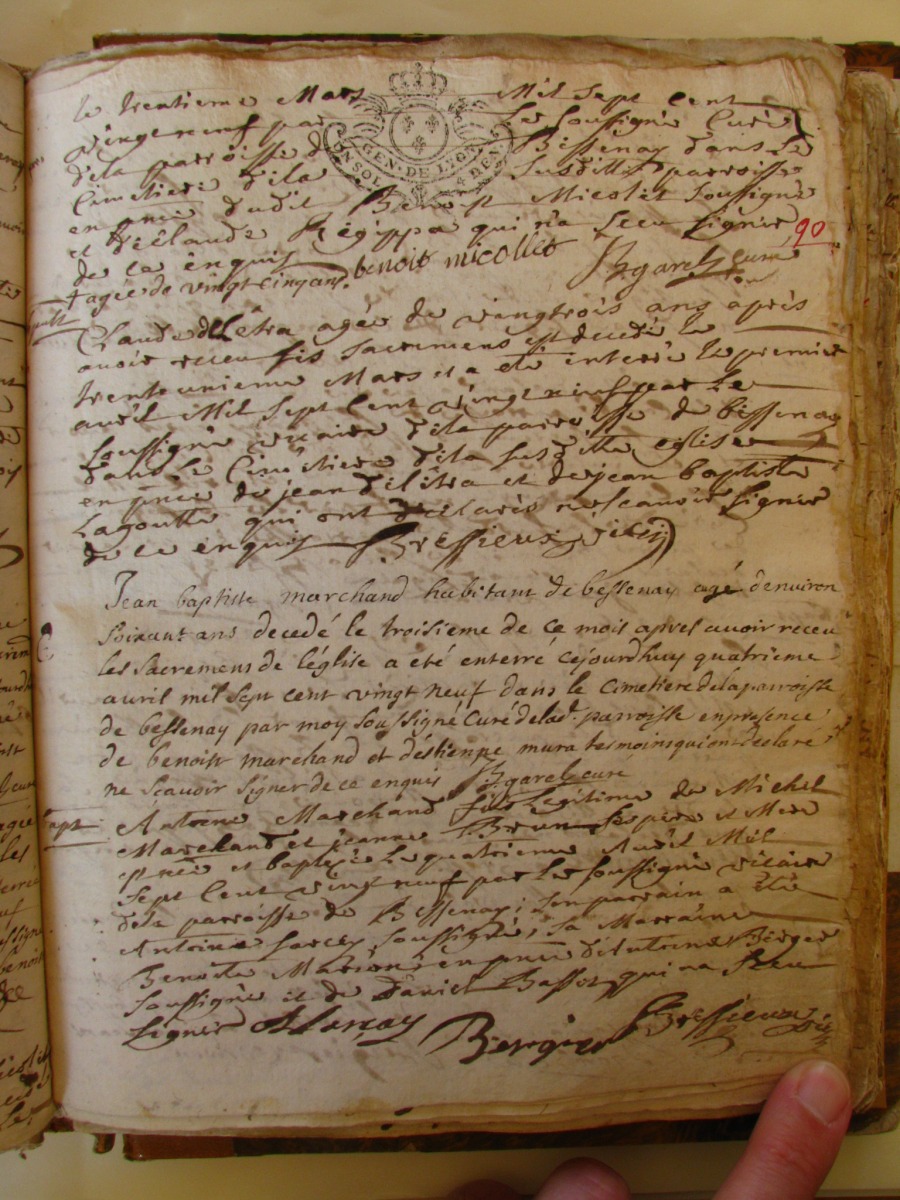 le trentieme Mars Mil sept Cent
vingtneuf par Les soussigné Curé
dela parroisse de Bessenay dans le
Cimetiere dela susditte parroisse
en pnce dudit Benoist Micolet soussigné
et de Claude Régippa qui n'a sceu signer
de ce enquis benoit micollet Bgarel cure
+ agée de vingt cinq ans
90
Claude delétra agée de vingtrois ans après
avoir receu ses sacremens est decedé le
trenteunieme Mars et a eté interré le premier
avril Mil sept Cent vingtneuf par Le
soussigné vicaire dela parroisse de bessenay
dans le Cimétiere dela susditte église
en pnce de jean delétra et de jean baptiste
Lagoutte qui ont declarés ne scavoir signer
de ce enquis Bressieux vic
Jean baptiste marchand habitant de bessenay agé denviron
soixant ans decedé le troisieme de ce mois apres avoir receu
les sacremens de l'église a eté enterré cejourdhuy quatrieme
avril mil sept cent vingt neuf dans le cimetiere dela parroisse
de bessenay par moy soussigné curé delad. parroisse en presence
de benoist marchand et déstienne mura tesmoins qui ont declaré
ne scavoir signer de ce enquis Bgarel cure
bapt
Antoine Marchand fils Legitime de Michel
Marchand et jeanne Brun ses pere et Mere
est né et baptizé le quatrieme Avril Mil
sept Cent vingt neuf par Les soussigné vicaire
dela parroisse de Bessenay; son parrain a été
Antoine Sarcey soussigné, sa Marraine
Benoite Marion en pnce d'Antoine Berger
soussigné et de Daniel Basset qui na sceu
signer A Sarçay Bergier Bressieux vic
GEN. DE LYON